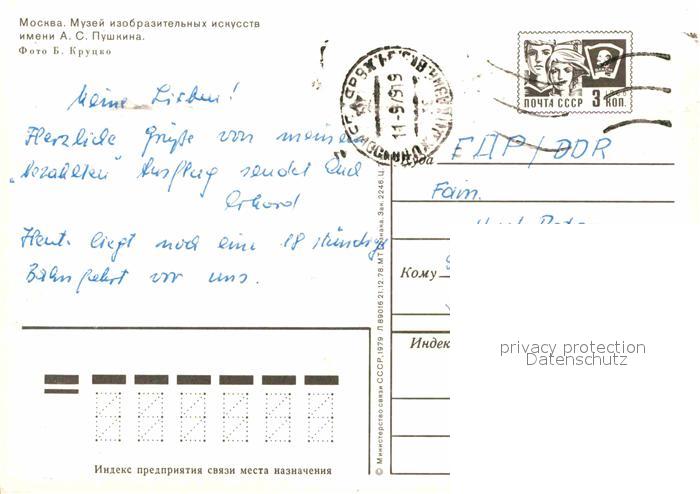 Москва. Музей изобразительных искусств
имени А. С. Пушкина.
Фото Б. Круцко
Meine Lieben!
Herzliche Grüße von meinem
Ausflug sendet Euch
Erhard
Heute liegt noch eine 18 stündige
Bahnfahrt vor uns.
ПОЧТА СССР 3 КОП.
Куда ГДР / DDR
Fam.
Кому
Индек
privacy protection
Datenschutz
Индекс предприятия связи места назначения
© Министерство связи СССР, 1979 Л 89016 21.12.78. МТ Гознака. Зак. 2246. Ц.